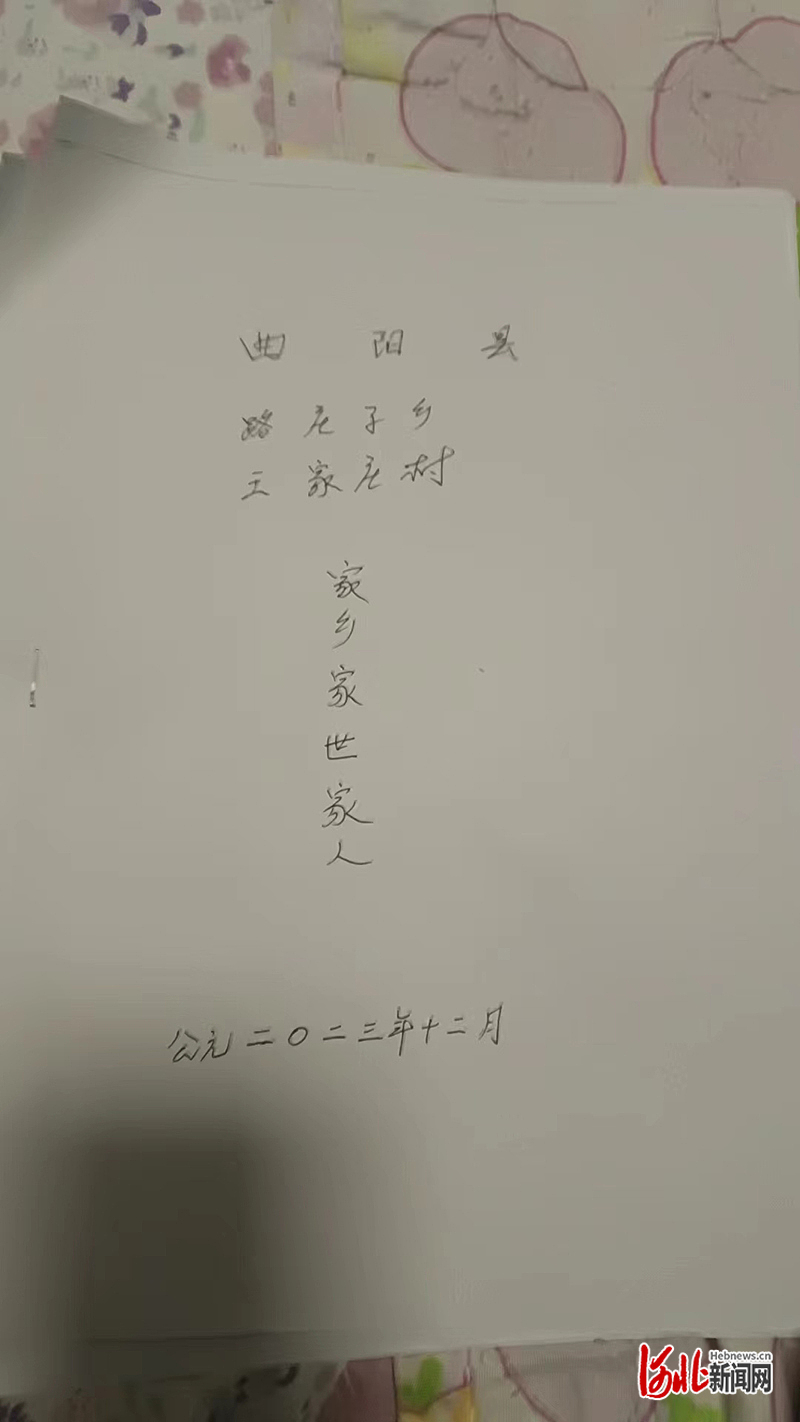 曲阳县
路庄子乡
王家庄村
家乡家世家人
公元二〇二三年十二月
河北新闻网
Hebnews.cn